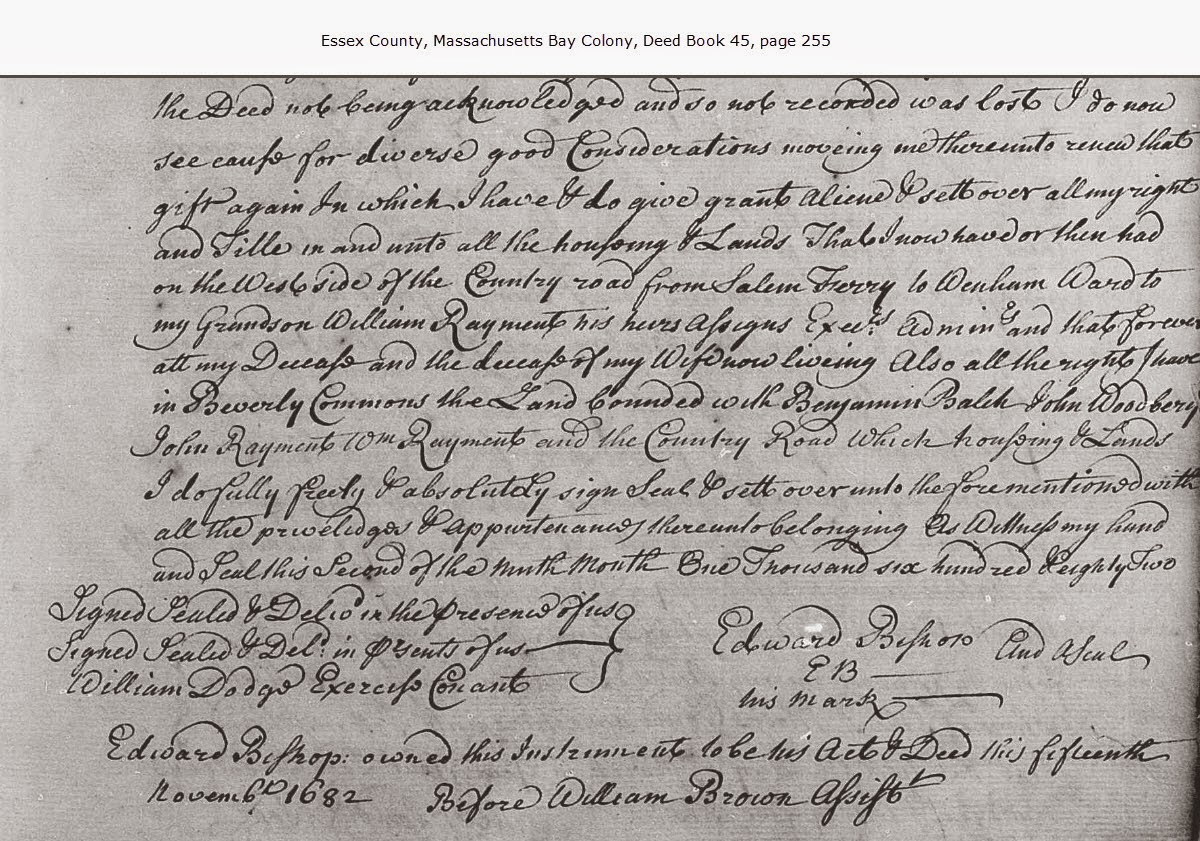 Essex County, Massachusetts Bay Colony, Deed Book 45, page 255
the Deed not being acknowledged and so not recorded was lost I do now
see cause for diverse good Considerations moveing me thereunto renew that
gift again In which I have & do give grant Aliene & sett over all my right
and Title in and unto all the housing & Lands That I now have or then had
on the West side of the Country road from Salem Ferry to Wenham Ward to
my Grandson William Rayment his heirs Assigns Execrs. Adminrs and that forever
att my Decease and the decease of my Wife now liveing Also all the right I have
in Beverly Commons the Land bounded with Benjamin Balch John Woodbery
John Rayment Wm Rayment and the Country Road Which housing & Lands
I do fully freely & absolutely sign Seal & sett over unto the forementioned with
all the priveledges & appurtenances thereunto belonging As Wittness my hand
and Seal this Second of the ninth Month One Thousand six hundred & eighty Two
Signed Sealed & Delivd in the Presence of us
Signed Sealed & Deld. in Presents of us
William Dodge Exercise Conant
Edward Bishop And a Seal
EB
his mark
Edward Bishop: owned this Instrument to be his Act & Deed this fifteenth
Novembr 1682 Before William Brown Assist